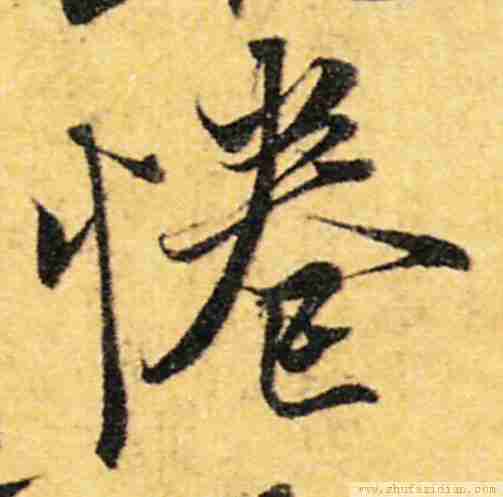 惓
www.shufazidian.com